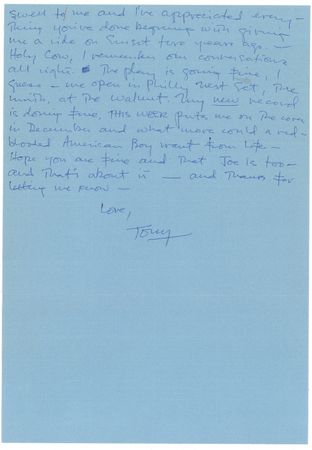 Swell to me and I've appreciated every-
thing you've done beginning with giving
me a ride on Sunset two years ago —
Holy Cow, I remember our conversations
all right. The play is going fine, I
guess — we open in Philly next Sat, the
ninth, at the Walnut. My new record
is doing fine, this week puts me on the
in December and what more could a red-
blooded American Boy want from Life —
Hope you are fine and that Joe is too —
and that's about it — and thanks for
letting me know —
Love,
Tony